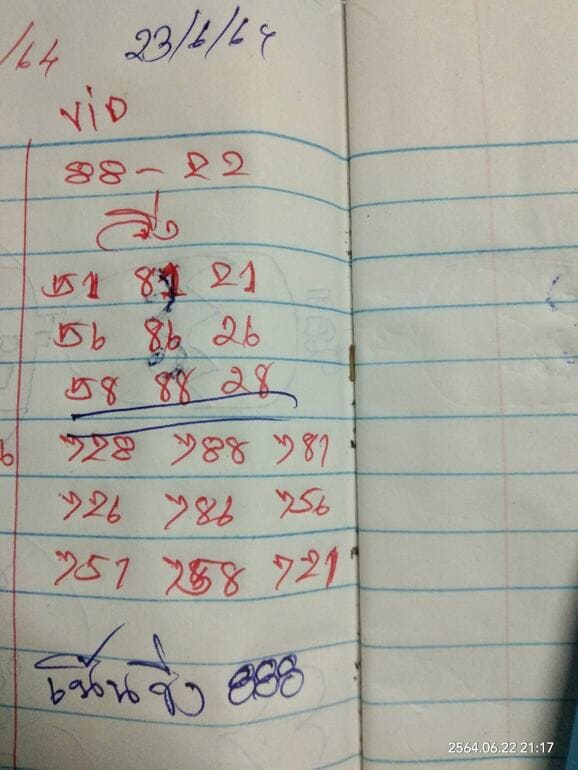 /64 23/6/64
VIP
88 - 22
วิ่ง
51 81 21
56 86 26
58 88 28
728 788 781
726 786 756
751 758 721
เน้นซิ่ง 888
2564.06.22 21:17